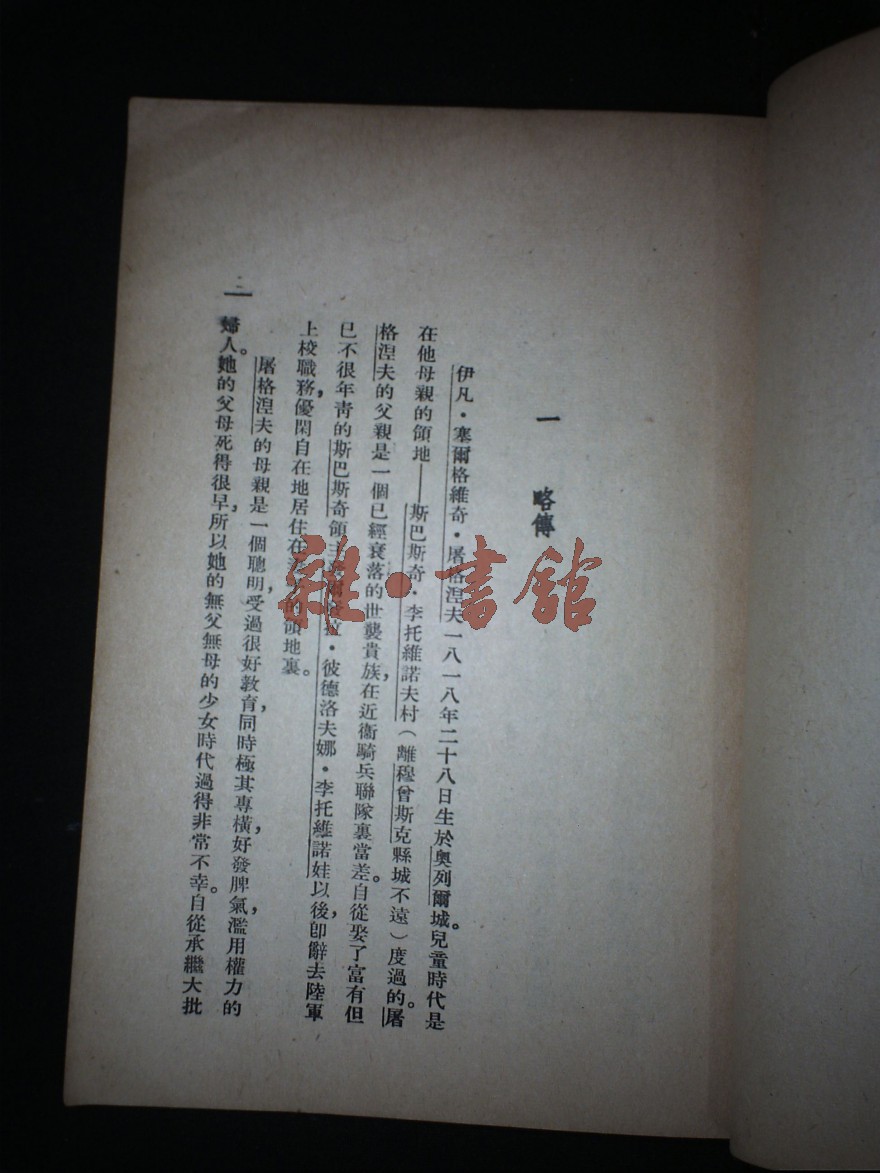 一 略傳
伊凡·塞爾格維奇·屠格涅夫一八一八年二十八日生於奧列爾城。兒童時代是
在他母親的領地——斯巴斯奇·李托維諾夫村(離穆曾斯克縣城不遠)度過的。屠
格涅夫的父親是一個已經衰落的世襲貴族,在近衞騎兵聯隊裏當差。自從娶了富有但
已不很年靑的斯巴斯奇領主·彼德洛夫娜·李托維諾娃以後,卽辭去陸軍
上校職務,優閑自在地居住在的領地裏。
屠格涅夫的母親是一個聰明,受過很好敎育,同時極其專橫,好發脾氣,濫用權力的
婦人。她的父母死得很早,所以她的無父無母的少女時代過得非常不幸。自從承繼大批
一
雜·書館